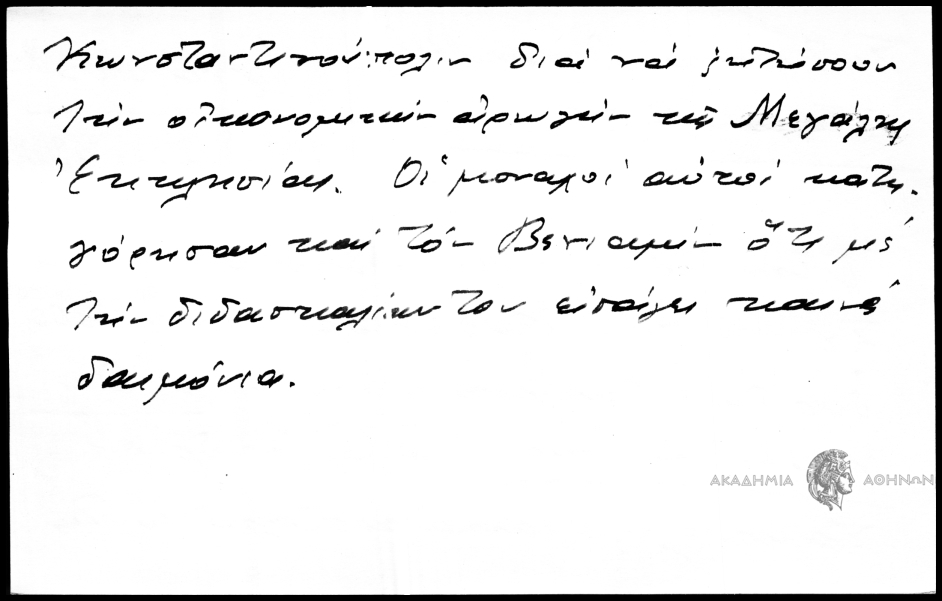 Κωνσταντινούπολιν διά νά ζητήσουν
τήν οἰκονομικήν ἀρωγήν τῆς Μεγάλης
Ἐκκλησίας. Οἱ μοναχοί αὐτοί κατη-
γόρησαν καί τόν Βενιαμίν ὅτι μέ
τήν διδασκαλίαν του εἰσάγει καινά
δαιμόνια.
ΑΚΑΔΗΜΙΑ ΑΘΗΝΩΝ